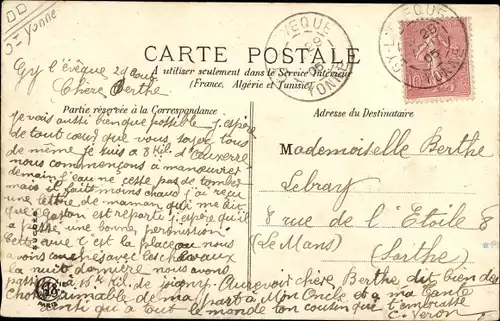 Yonne
GY-L'EVEQUE
YONNE
CARTE POSTALE
A utiliser seulement dans le Service Intérieur
(France, Algérie et Tunisie)
Gy l'évêque 29 aout
Chère Berthe
Partie réservée à la Correspondance
Adresse du Destinataire
je vais aussi bien que possible j'espère
de tout cœur que vous soyez tous
de même je suis a 8 Kil. d'Auxerre
nous commençons à manœuvrer
demain l'eau ne cette pas de tomber
mais il faits moins chaud j'ai reçu
une lettre de maman qui me dit
que Gaston est reparti j'espère qu'il
a passé une bonne permission
c'est la place ou nous
avons couchés avec les chevaux
la nuit dernière nous avons
passés a Kil. de joigny. Au revoir chère Berthe dit bien des
chose aimable de ma part a Mon Oncle et a ma Tante
qu'a tout le monde ton cousin que t'embrasse
C. Veron
Mademoiselle Berthe
Lebray
8 rue de l'Etoile 8
(Le Mans)
Sarthe